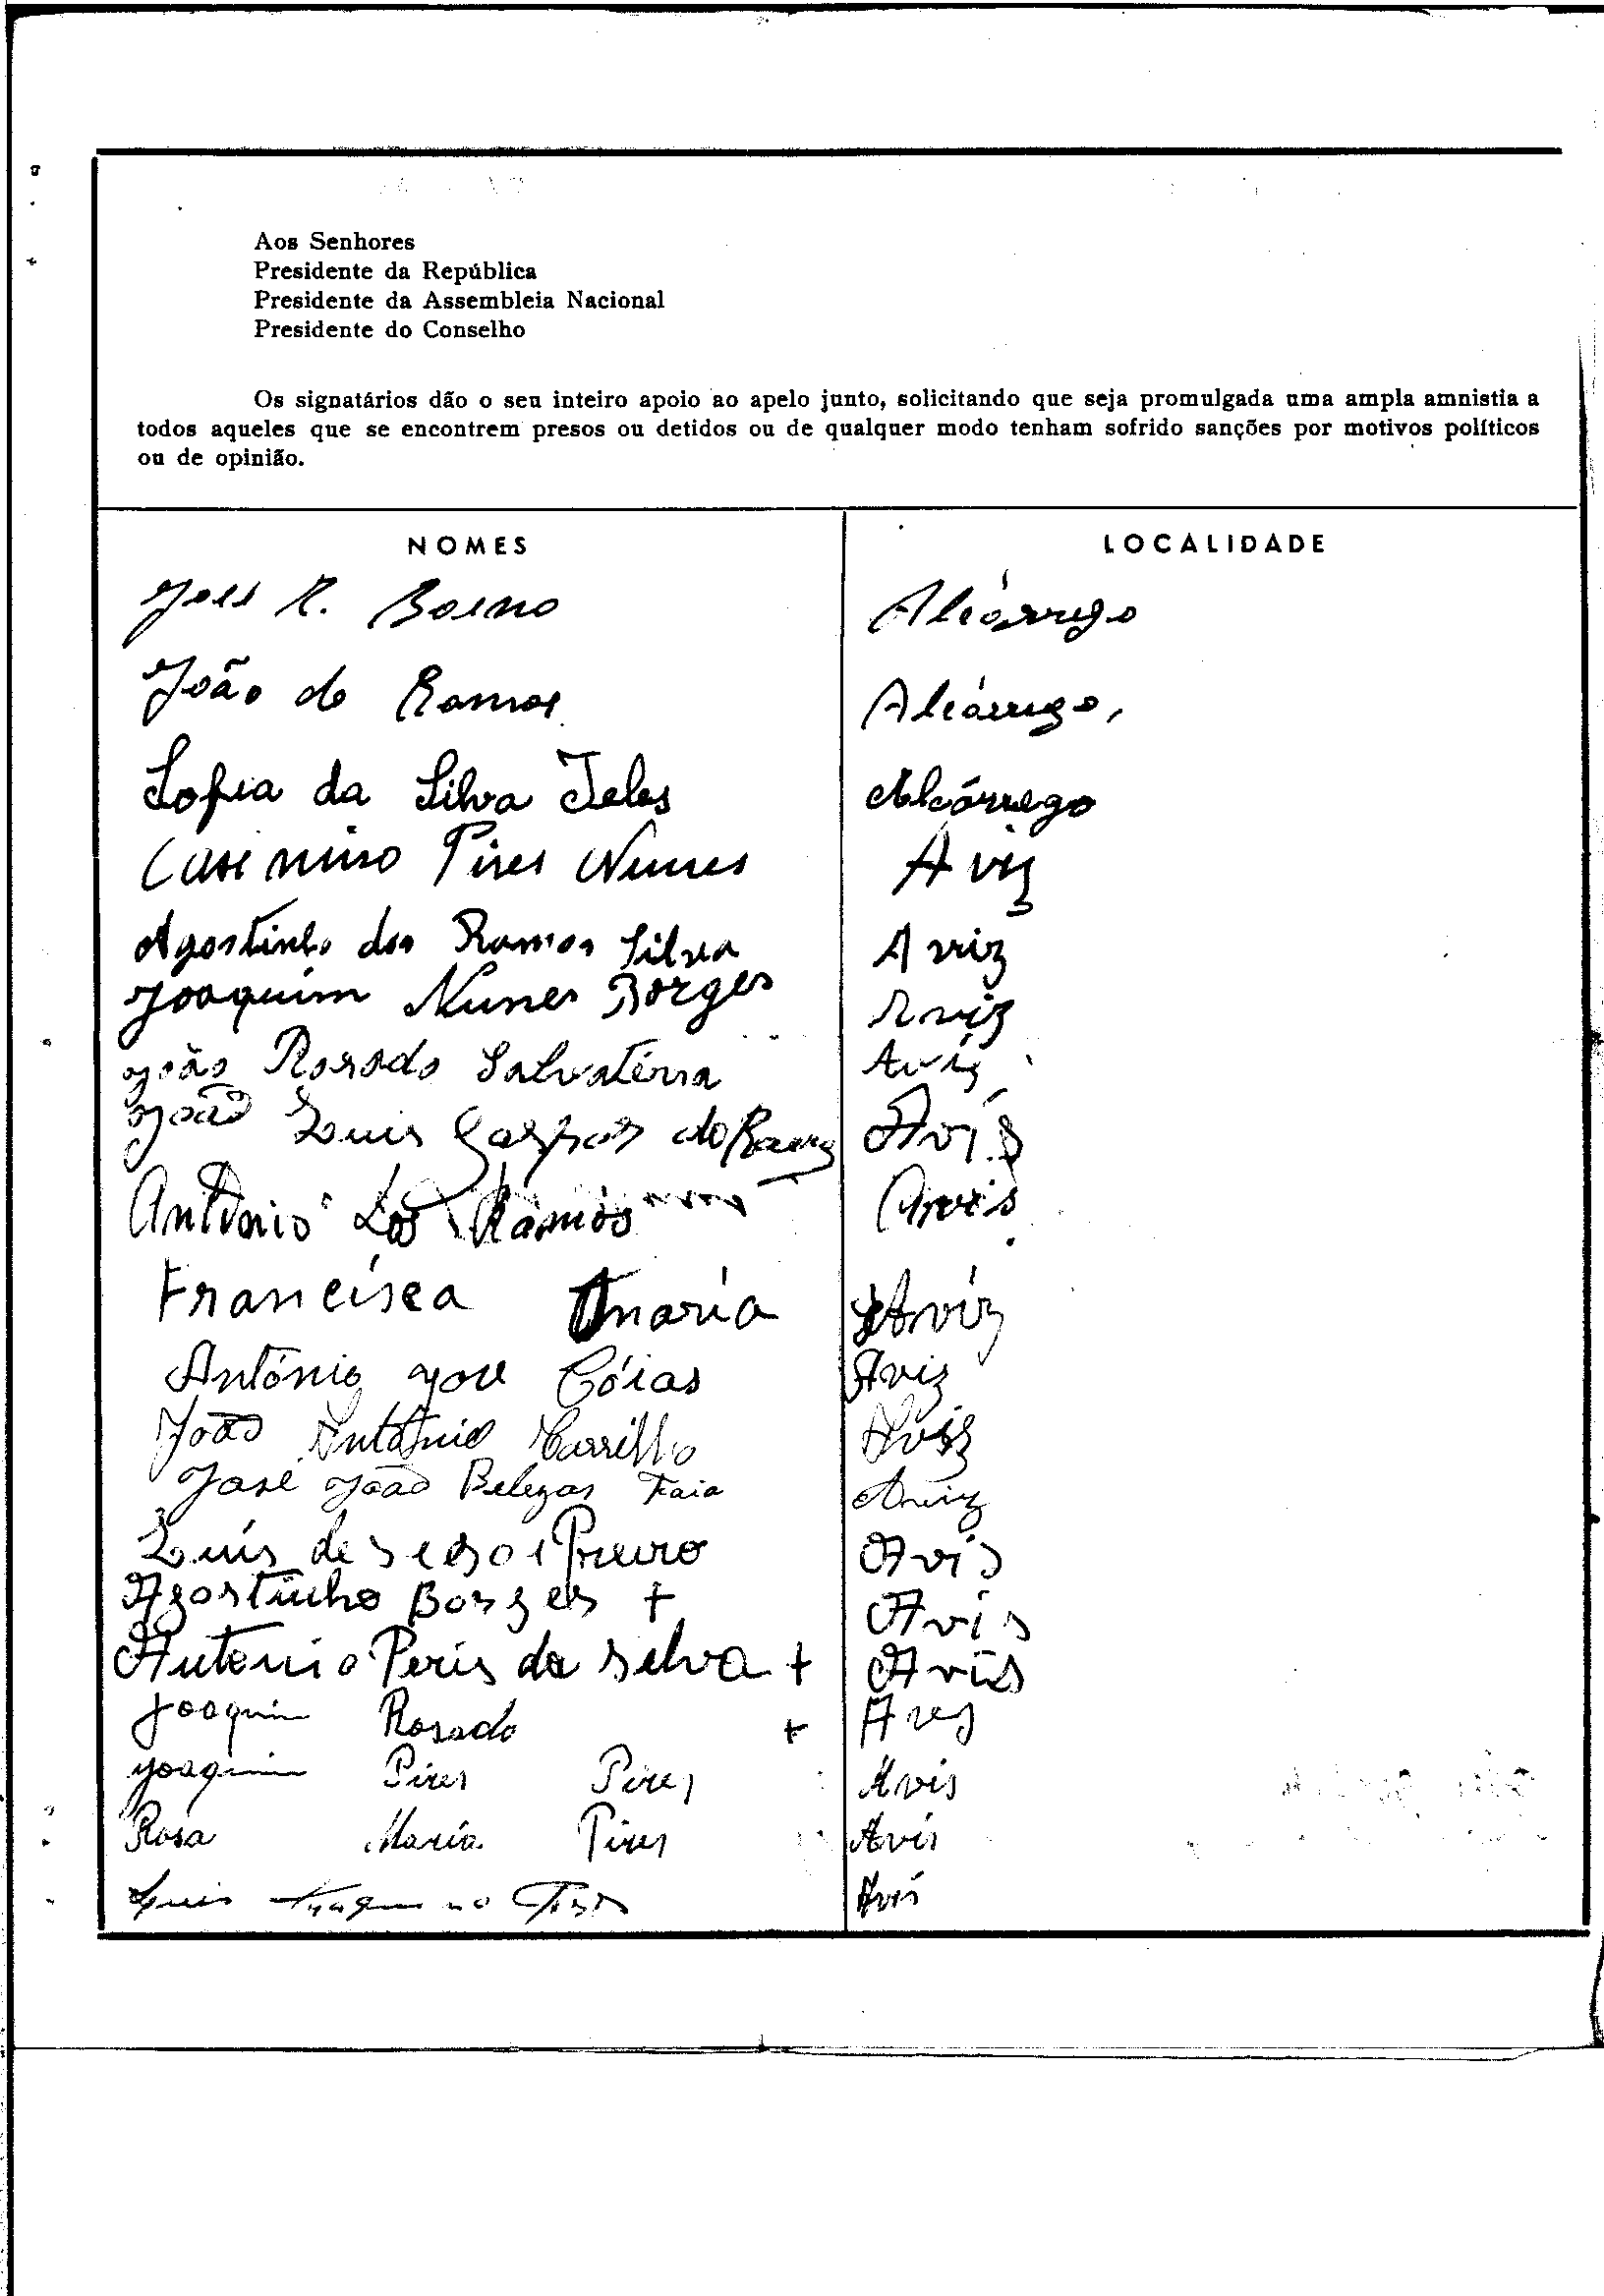 Aos Senhores
Presidente da República
Presidente da Assembleia Nacional
Presidente do Conselho
Os signatários dão o seu inteiro apoio ao apelo junto, solicitando que seja promulgada uma ampla amnistia a
todos aqueles que se encontrem presos ou detidos ou de qualquer modo tenham sofrido sanções por motivos políticos
ou de opinião.
NOMES LOCALIDADE
R. Alcórrego
João de Ramos Alcórrego,
Sofia da Silva Teles Alcórrego
Casimiro Pires Nunes Aviz
Agostinho dos Ramos Silva Aviz
Joaquim Nunes Borges Aviz
João Rosado Salvatérra Aviz
João Luis Gaspar Avís
António Ramos Avis
Francisca Maria Aviz
António José Cóias Aviz
João António Carrilho Aviz
José João Belezas Faia Aviz
Luís de Avis
Agostinho Borges + Avis
Antonio Peris da Selva + Avis
Joaquim Rosado + Aves
Joaquim Pires Pires Avis
Rosa Maria Pires Avis
Luis Avis